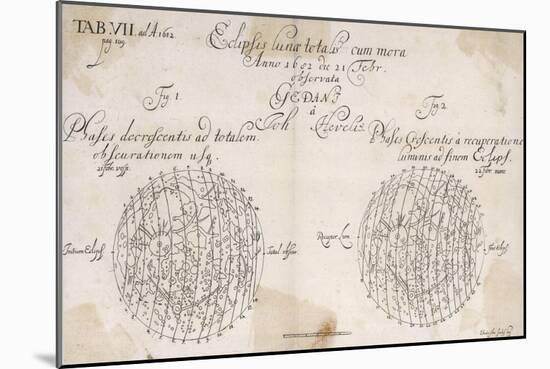 TAB. VII. ad A. 1682.
pag. 109.
Eclipsis lunæ totalis cum mora
Anno 1682 die 21 Febr.
observata
GEDANI
à
Joh Hevelio
Fig. 1.
Phases decrescentis ad totalem
obscurationem usq.
21 febr. vesp.
Initium Eclips
Total. obscur.
Fig. 2.
Phases Crescentis à recuperatione
luminis ad finem Eclips.
22 febr. mane
Recuper. Lum.